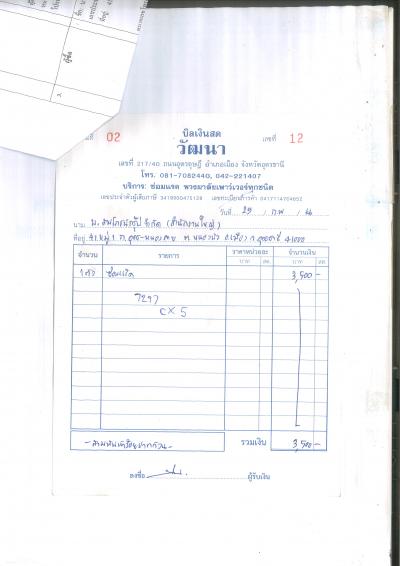 ผู้ซื้อ
2.
ที่ 02 บิลเงินสด เลขที่ 12
วัฒนา
เลขที่ 217/40 ถนนอุดรดุษฎี อำเภอเมือง จังหวัดอุดรธานี
โทร. 081-7082440, 042-221407
บริการ: ซ่อมแรค พวงมาลัยเพาว์เวอร์ทุกชนิด
เลขประจำตัวผู้เสียภาษี เลขทะเบียนการค้า
วันที่ 29 / ก.พ /
นาม จำกัด (สำนักงานใหญ่)
ที่อยู่ 41 หมู่ 1 ถ. 41000
จำนวน รายการ ราคาหน่วยละ จำนวนเงิน
บาท สต. บาท สต.
1 ตัว ซ่อมแร็ค 3,500 -
7297
CX 5
- สามพันห้าร้อยบาทถ้วน - รวมเงิน 3,500 -
ลงชื่อ ผู้รับเงิน